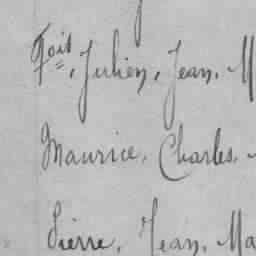 Fois, Julien, Jean, M
Maurice, Charles,
Pierre, Jean, Ma